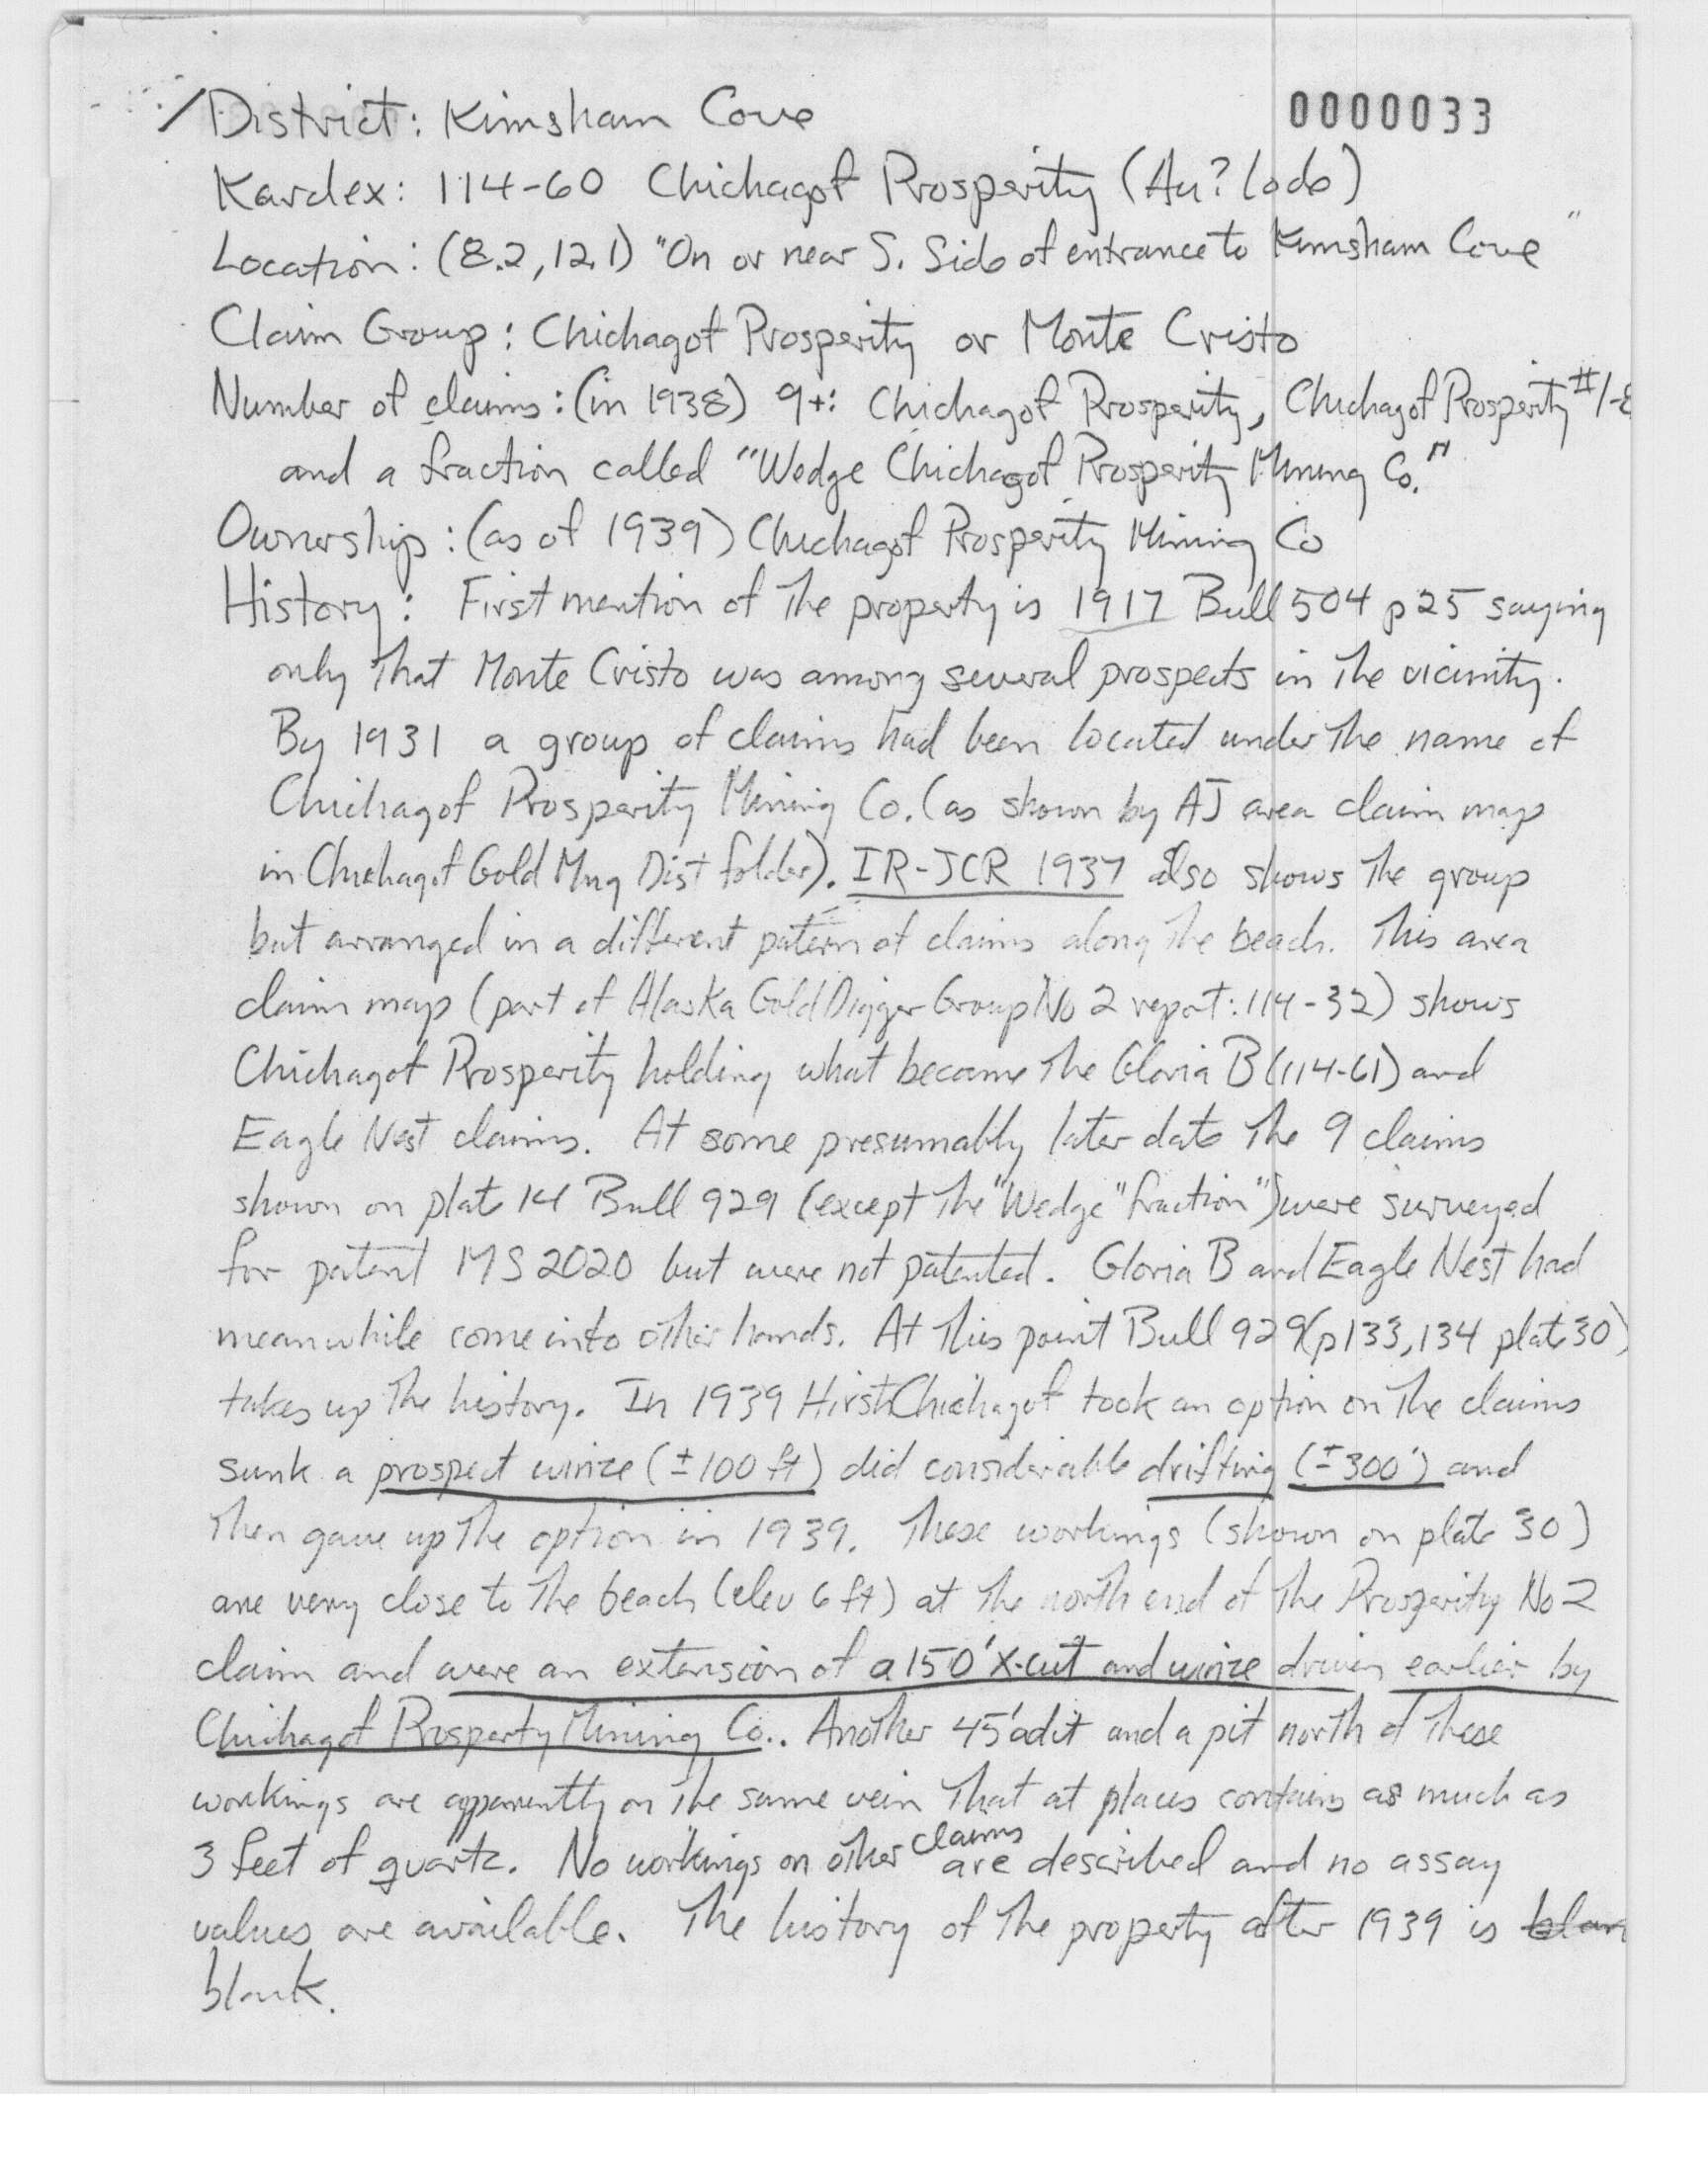 District: Kimsham Cove
0000033
Kardex: 114-60 Chichagof Prosperity (Au? lode)
Location: (8.2, 12.1) "On or near S. Side of entrance to Kimsham Cove"
Claim Group: Chichagof Prosperity or Monte Cristo
Number of claims: (in 1938) 9+: Chichagof Prosperity, Chichagof Prosperity #1-8
and a fraction called "Wedge Chichagof Prosperity Mining Co."
Ownership: (as of 1939) Chichagof Prosperity Mining Co
History: First mention of the property is 1917 Bull 504 p25 saying
only that Monte Cristo was among several prospects in the vicinity.
By 1931 a group of claims had been located under the name of
Chichagof Prosperity Mining Co. (as shown by AJ area claim map
in Chichagof Gold Mng Dist folder). IR-JCR 1937 also shows the group
but arranged in a different patern of claims along the beach. This area
claim map (part of Alaska Gold Digger Group No 2 report: 114-32) shows
Chichagof Prosperity holding what became the Gloria B (114-61) and
Eagle Nest claims. At some presumably later date the 9 claims
shown on plate 14 Bull 929 (except the "Wedge" fraction") were surveyed
for patent MS 2020 but were not patented. Gloria B and Eagle Nest had
meanwhile come into other hands. At this point Bull 929 (p133,134 plate 30)
takes up the history. In 1939 Hirst Chichagof took an option on the claims
sunk a prospect winze (±100 ft) did considerable drifting (±300') and
then gave up the option in 1939. These workings (shown on plate 30)
are very close to the beach (elev 6 ft) at the north end of the Prosperity No 2
claim and were an extension of a 150' X-cut and winze driven earlier by
Chichagof Prosperty Mining Co.. Another 45' adit and a pit north of these
workings are apparently on the same vein that at places contains as much as
3 feet of quartz. No workings on other claims are described and no assay
values are available. The history of the property after 1939 is blan
blank.